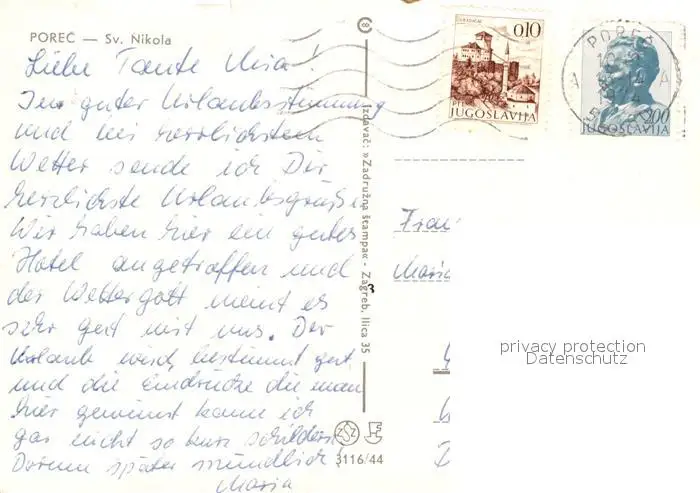 POREČ — Sv. Nikola
Liebe Tante Mia!
In guter Urlaubsstimmung
und bei herrlichstem
Wetter sende ich Dir
herzlichste Urlaubsgrüße.
Wir haben hier ein gutes
Hotel angetroffen und
der Wettergott meint es
sehr gut mit uns. Der
Urlaub wird bestimmt gut
und die Eindrücke die man
hier gewinnt kann ich
gar nicht so kurz schildern
Darum später mündlich!
Maria
Izdavač: »Zadružna štampa« - Zagreb, Ilica 35
3
3116/44
0,10
JUGOSLAVIJA
POREČ
2,00
JUGOSLAVIJA
Frau
Maria
privacy protection
Datenschutz